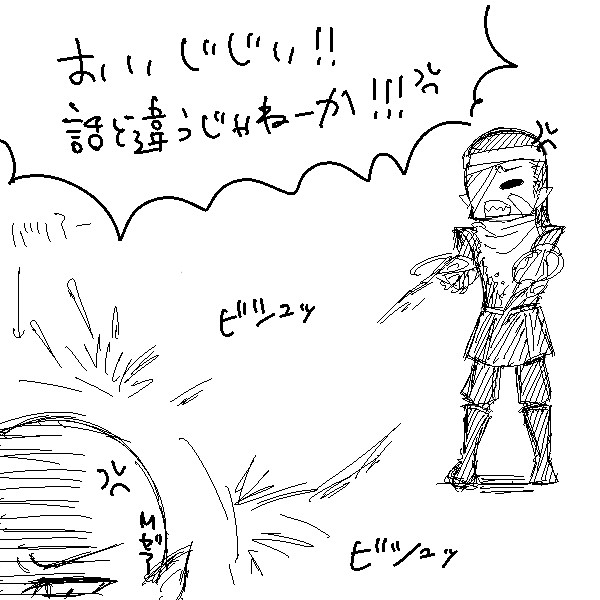 おいじじい!!
話と違うじゃねーか!!!
バリアー
ビシュッ
Mゼア
ビシュッ